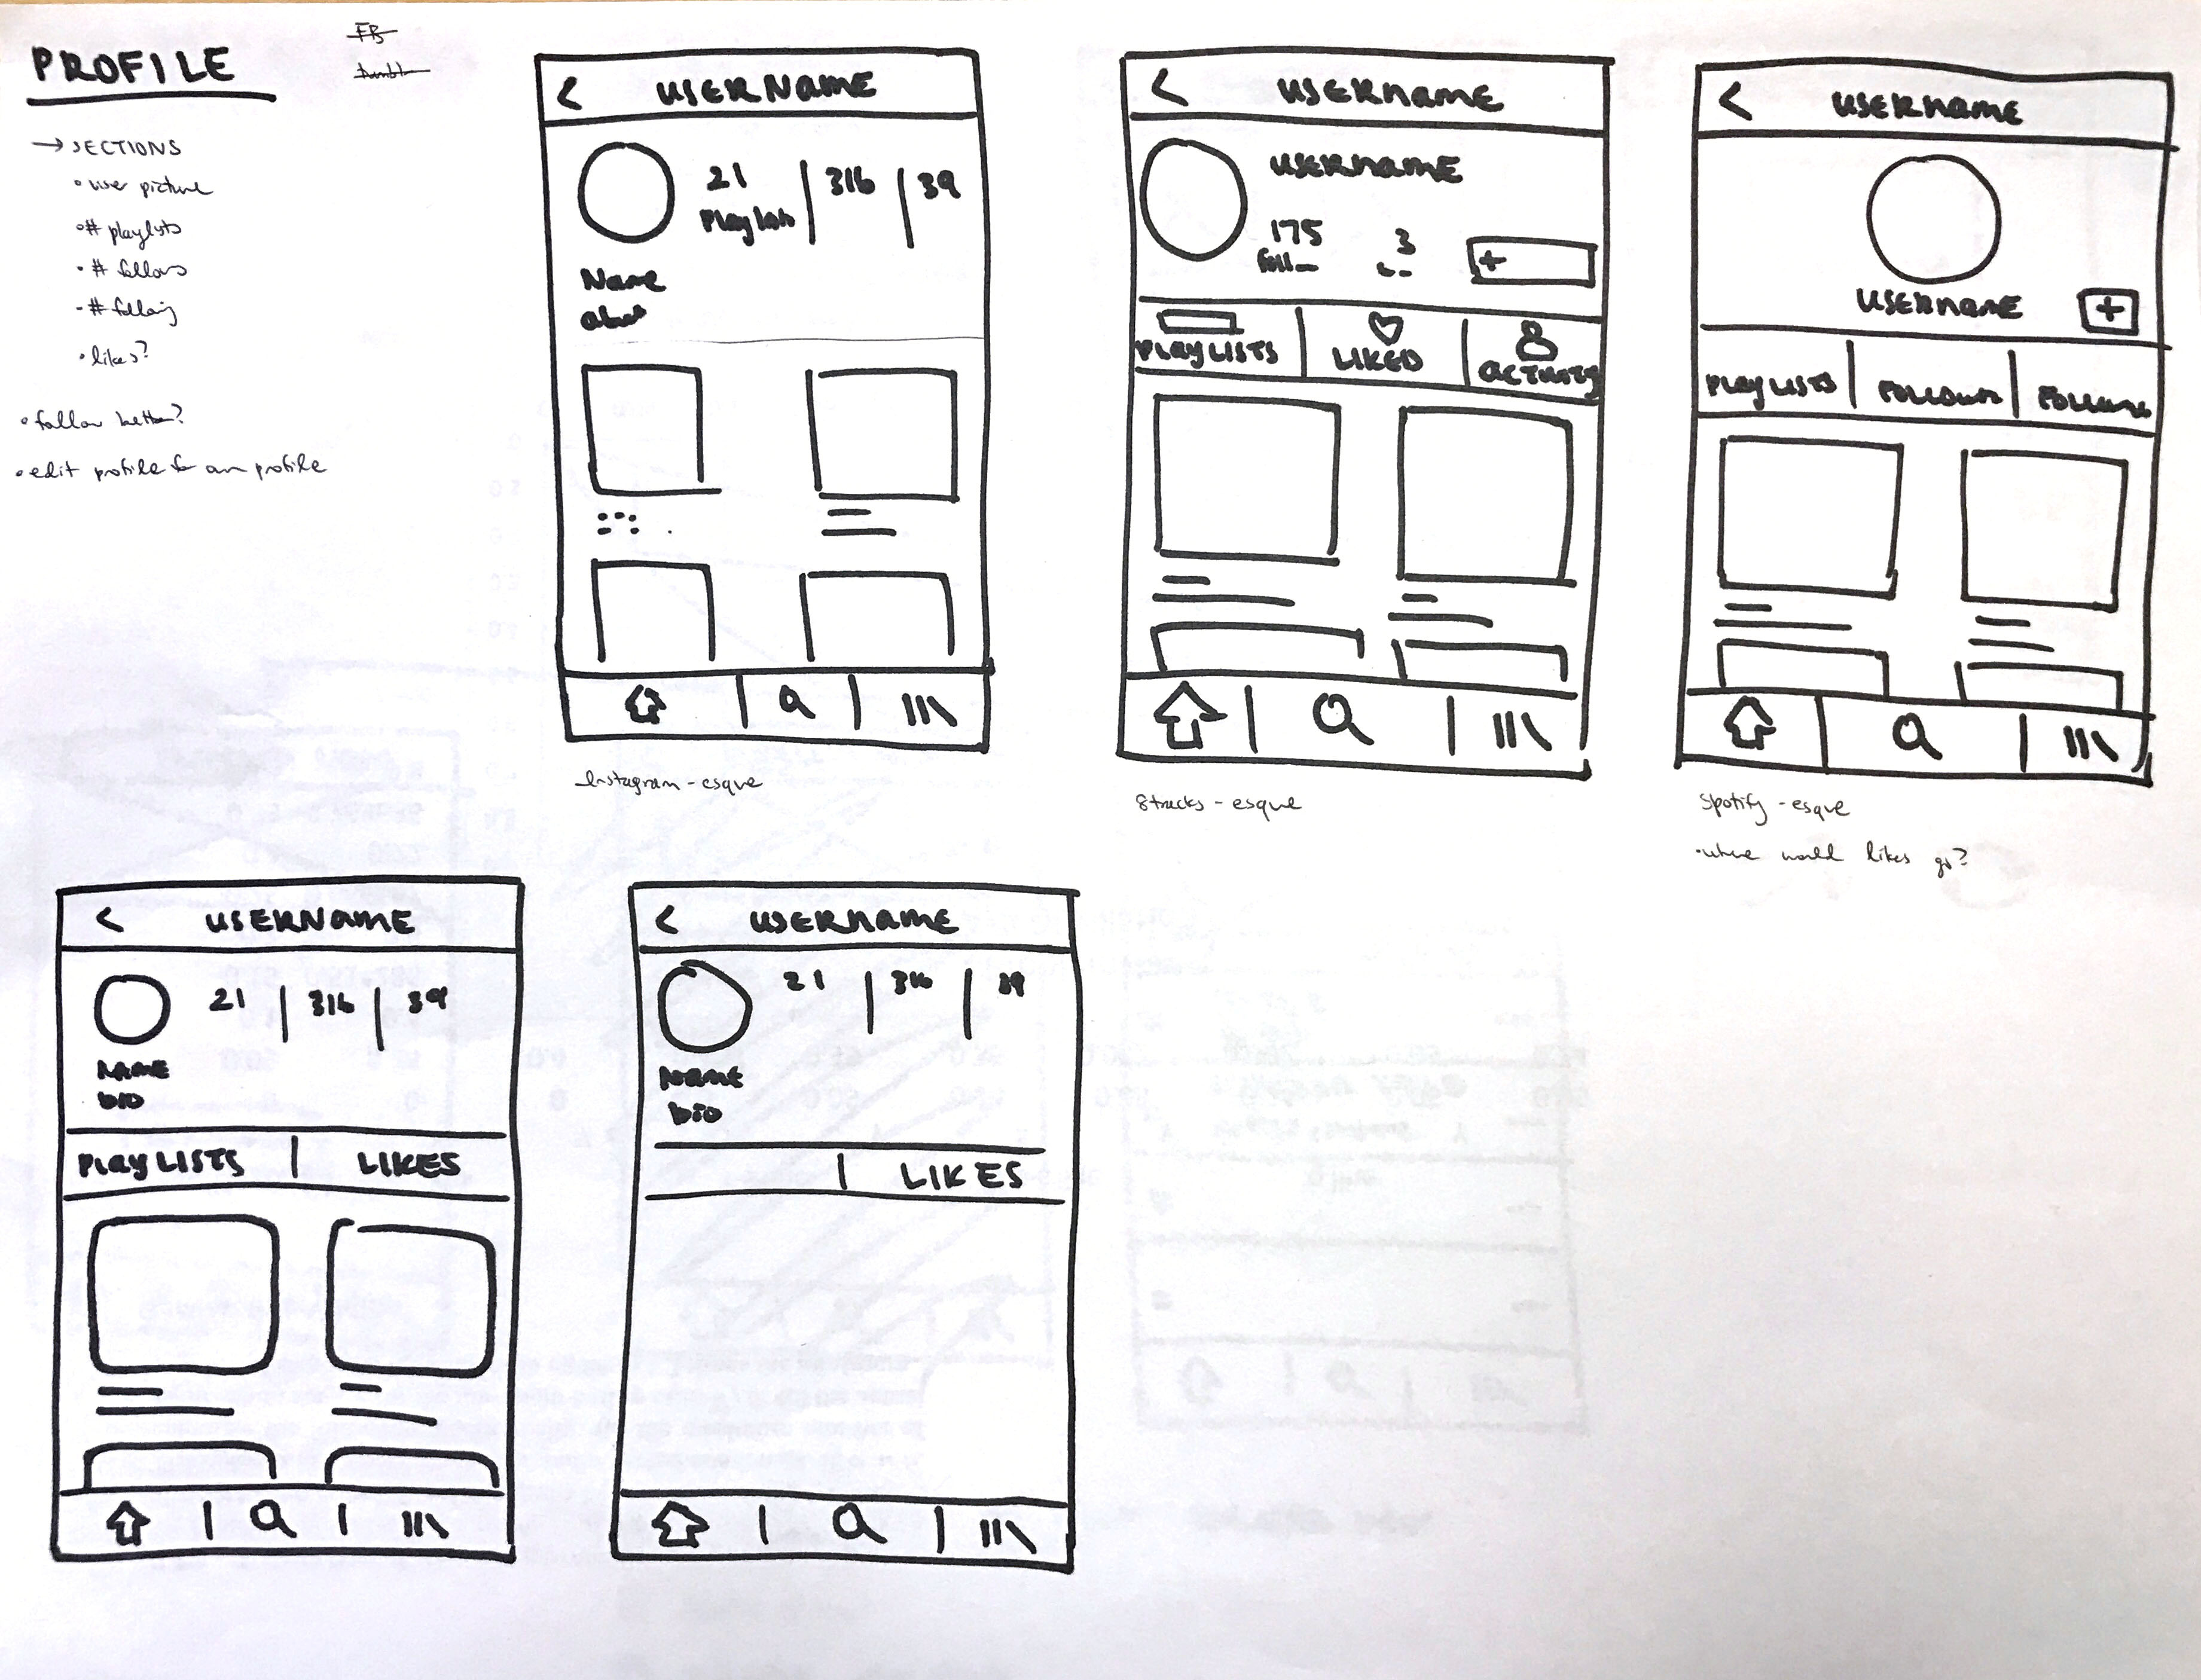 PROFILE
FB
tumblr
→ SECTIONS
• user picture
• # playlists
• # follows
- # following
• likes?
• follow button?
• edit profile for own profile
< USERNAME
21 | 316 | 39
Playlists
Name
about
Instagram - esque
< USERNAME
USERNAME
175 3
foll
+
PLAYLISTS | LIKED | ACTIVITY
8tracks - esque
< USERNAME
USERNAME +
PLAYLISTS | FOLLOWERS | FOLLOWING
Spotify - esque
• where would likes go?
< USERNAME
21 | 316 | 39
NAME
bio
PLAYLISTS | LIKES
< USERNAME
21 | 316 | 39
Name
bio
| LIKES